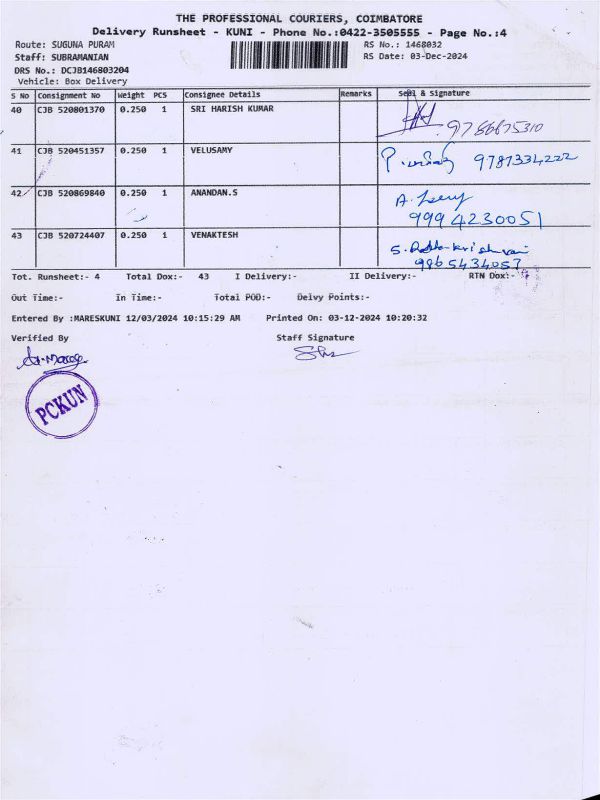 THE PROFESSIONAL COURIERS, COIMBATORE
Delivery Runsheet - KUNI - Phone No.:0422-3505555 - Page No.:4
Route: SUGUNA PURAM RS No.: 1468032
Staff: SUBRAMANIAN RS Date: 03-Dec-2024
DRS No.: DCJB146803204
Vehicle: Box Delivery
S No Consignment No Weight PCS Consignee Details Remarks Seal & Signature
40 CJB 520801370 0.250 1 SRI HARISH KUMAR 9786675310
41 CJB 520451357 0.250 1 VELUSAMY 9787334222
42 CJB 520869840 0.250 1 ANANDAN.S 9994230051
43 CJB 520724407 0.250 1 VENAKTESH 9965434057
Tot. Runsheet:- 4 Total Dox:- 43 I Delivery:- II Delivery:- RTN Dox:-
Out Time:- In Time:- Total POD:- Delvy Points:-
Entered By :MARESKUNI 12/03/2024 10:15:29 AM Printed On: 03-12-2024 10:20:32
Verified By Staff Signature
PCKUN